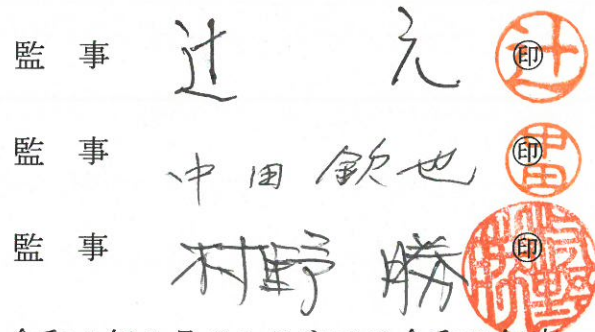 監 事 辻 元 ㊞
監 事 中田 欽也 ㊞
監 事 村野 勝 ㊞